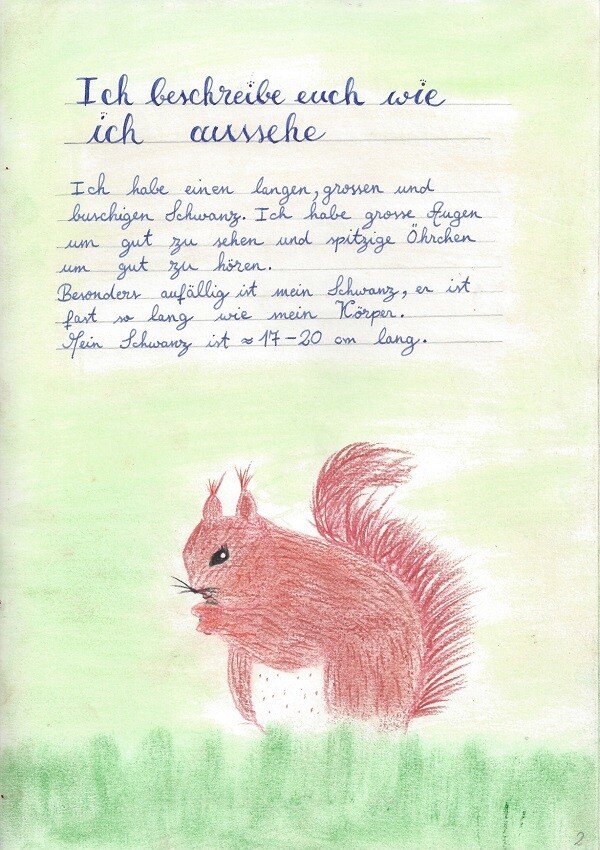 Ich beschreibe euch wie
ich aussehe
Ich habe einen langen, grossen und
buschigen Schwanz. Ich habe grosse Augen
um gut zu sehen und spitzige Öhrchen
um gut zu hören.
Besonders aufällig ist mein Schwanz, er ist
fast so lang wie mein Körper.
Mein Schwanz ist ≈ 17-20 cm lang.
2